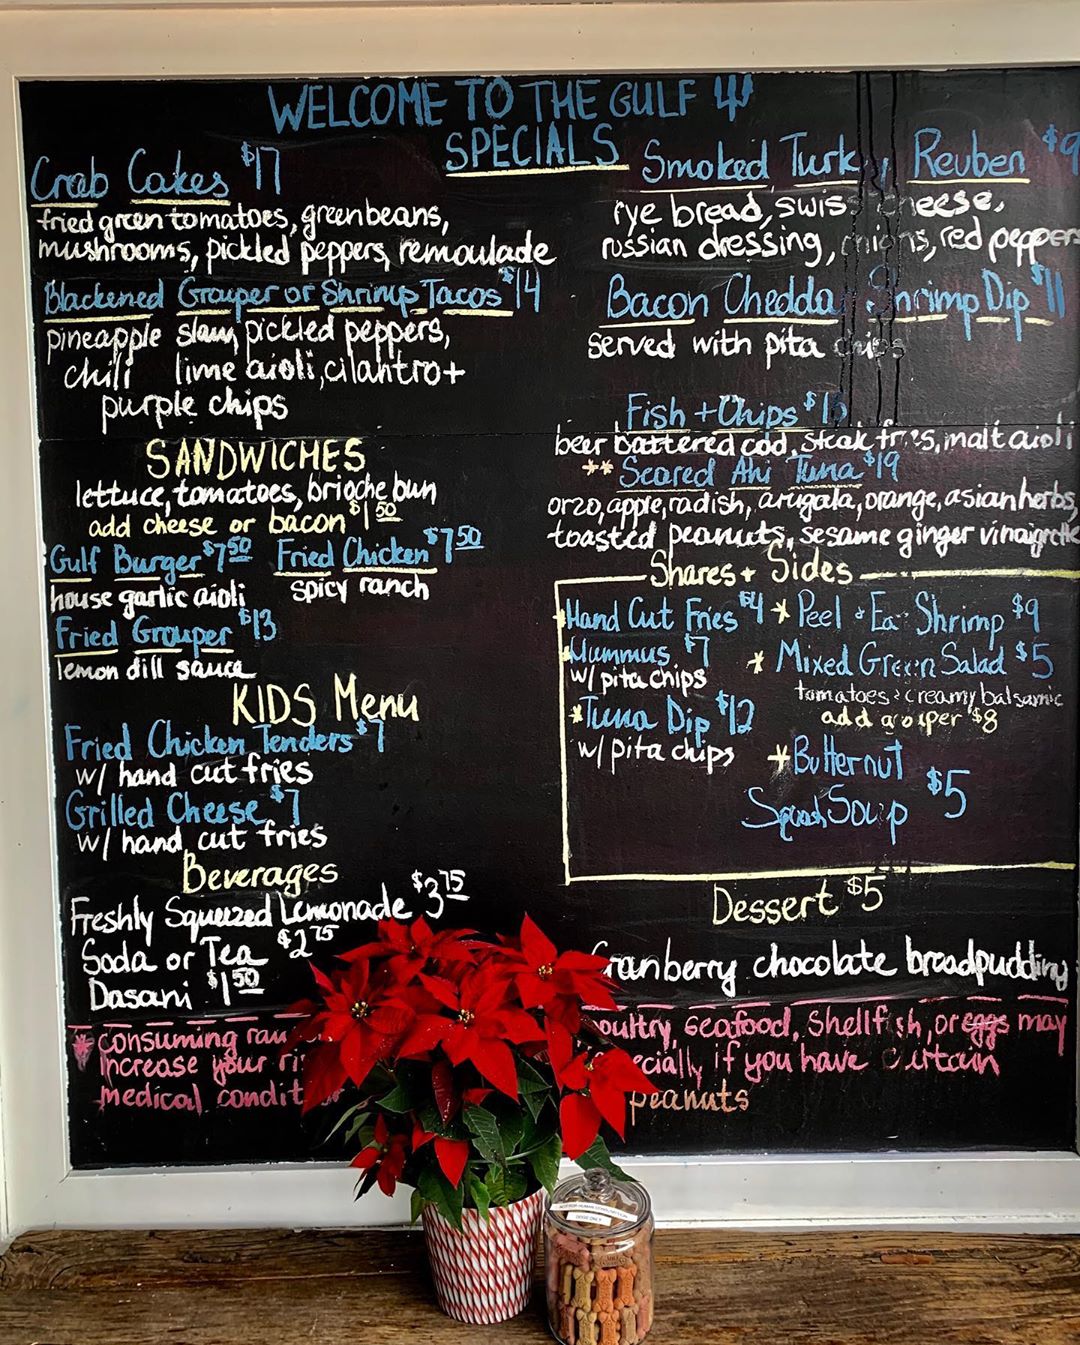 WELCOME TO THE GULF
SPECIALS
Crab Cakes $17
fried green tomatoes, greenbeans,
mushrooms, pickled peppers, remoulade
Blackened Grouper or Shrimp Tacos $14
pineapple slaw, pickled peppers,
chili lime aioli, cilantro +
purple chips
SANDWICHES
lettuce, tomatoes, brioche bun
add cheese or bacon $1 50
Gulf Burger $7 50 Fried Chicken $7 50
house garlic aioli spicy ranch
Fried Grouper $13
lemon dill sauce
KIDS Menu
Fried Chicken Tenders $7
w/ hand cut fries
Grilled Cheese $7
w/ hand cut fries
Beverages
Freshly Squeezed Lemonade $3 75
Soda or Tea $2 75
Dasani $1 50
Smoked Turk y Reuben $9
rye bread, swiss cheese,
russian dressing, onions, red peppers
Bacon Chedda Shrimp Dip $11
served with pita chips
Fish + Chips
beer battered cod, steak fries, malt aioli
** Seared Ahi Tuna $19
orzo, apple, radish, arugala, orange, asian herbs,
toasted peanuts, sesame ginger vinaigrette
Shares + Sides
Hand Cut Fries $4 * Peel & Eat Shrimp $9
Hummus $7 * Mixed Green Salad $5
w/ pita chips tomatoes & creamy balsamic
*Tuna Dip $12 add grouper $8
w/ pita chips *Butternut
Squash Soup $5
Dessert $5
Cranberry chocolate breadpudding
* consuming raw poultry, seafood, shellfish, or eggs may
increase your especially if you have certain
medical condit
peanuts